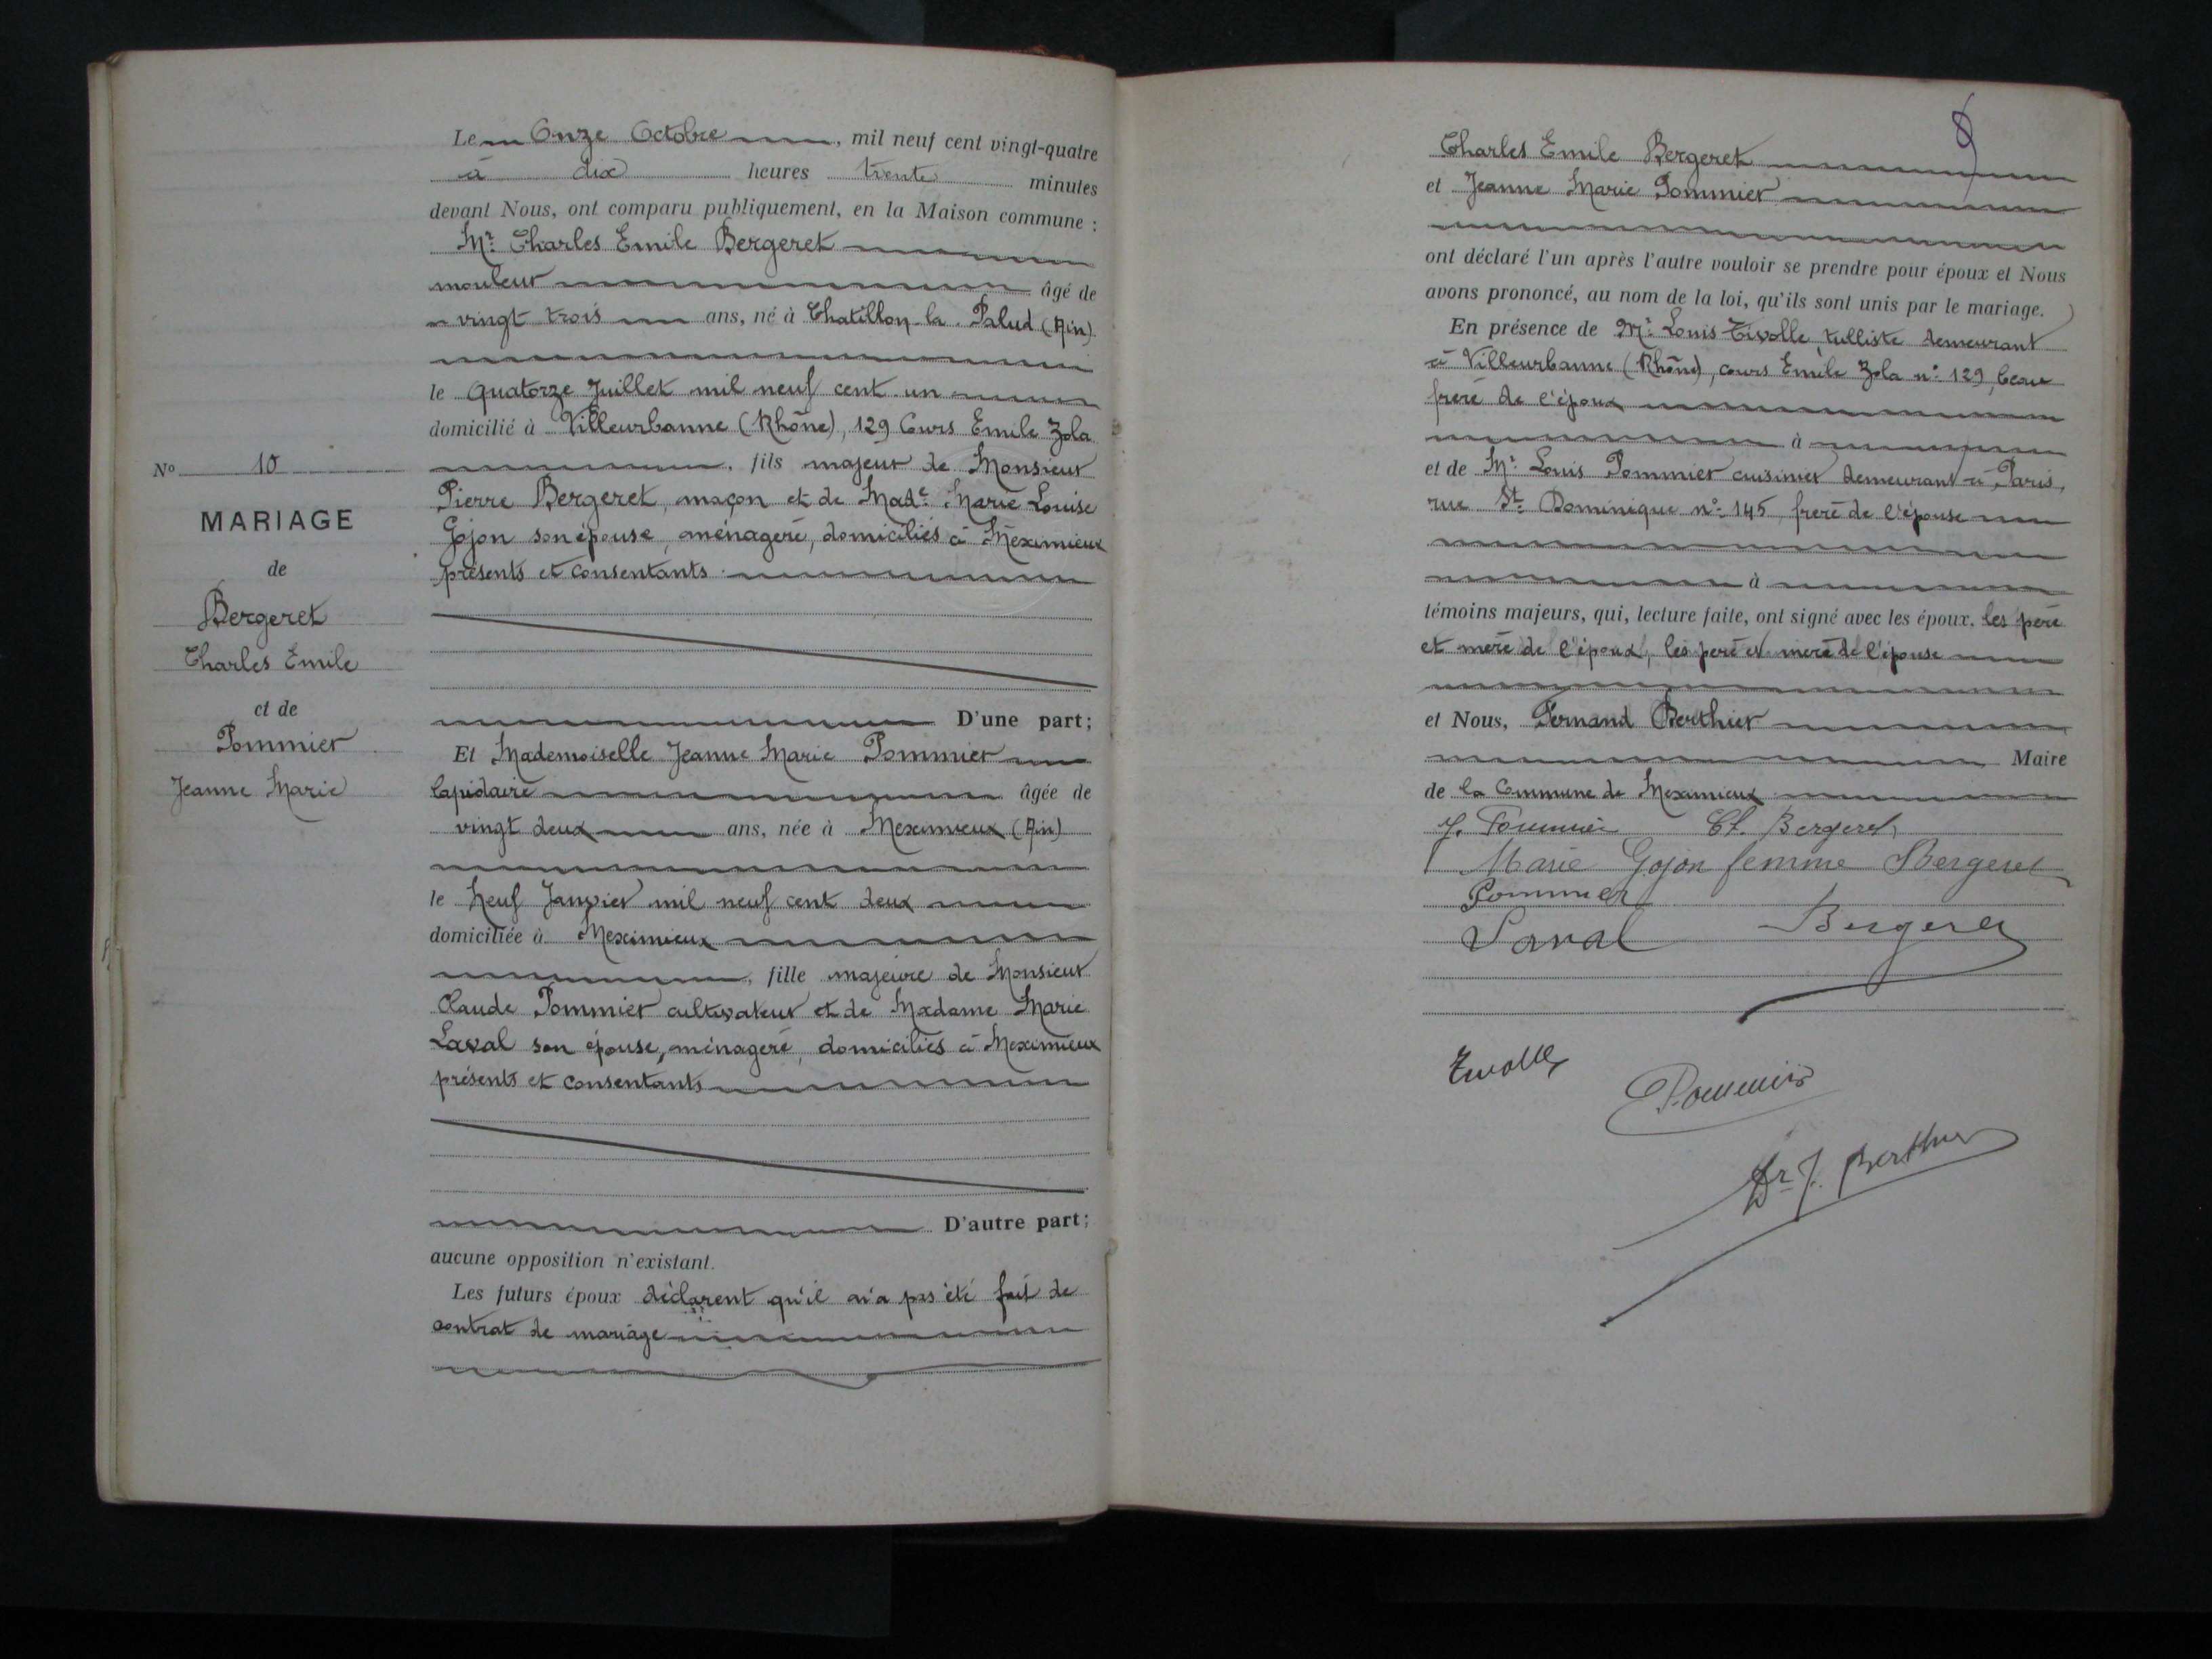 Le Onze Octobre, mil neuf cent vingt-quatre
à dix heures trente minutes
devant Nous, ont comparu publiquement, en la Maison commune :
Mr Charles Emile Bergeret
mouleur âgé de
vingt trois ans, né à Chatillon la Palud (Ain)
le Quatorze Juillet mil neuf cent un
domicilié à Villeurbanne (Rhône), 129 Cours Emile Zola
, fils majeur de Monsieur
Pierre Bergeret, maçon et de Made Marie Louise
Gojon son épouse, ménagère, domiciliés à Meximieux
présents et consentants
D'une part;
Et Mademoiselle Jeanne Marie Pommier
lapidaire âgée de
vingt deux ans, née à Meximieux (Ain)
le Neuf Janvier mil neuf cent deux
domiciliée à Meximieux
, fille majeure de Monsieur
Claude Pommier cultivateur et de Madame Marie
Laval son épouse, ménagère, domiciliés à Meximieux
présents et consentants
D'autre part;
aucune opposition n'existant.
Les futurs époux déclarent qu'il n'a pas été fait de
contrat de mariage
No 10
MARIAGE
de
Bergeret
Charles Emile
et de
Pommier
Jeanne Marie
8
Charles Emile Bergeret
et Jeanne Marie Pommier
ont déclaré l'un après l'autre vouloir se prendre pour époux et Nous
avons prononcé, au nom de la loi, qu'ils sont unis par le mariage.
En présence de Mr Louis Tivolle tulliste demeurant
à Villeurbanne (Rhône), cours Emile Zola n° 129, beau
frère de l'époux
à
et de Mr Louis Pommier cuisinier demeurant à Paris,
rue St Dominique n° 145, frère de l'épouse
à
témoins majeurs, qui, lecture faite, ont signé avec les époux, les père
et mère de l'époux, les père et mère de l'épouse
et Nous, Fernand Berthier
Maire
de la Commune de Meximieux
J. Pommier Ch. Bergeret
Marie Gojon femme Bergeret
Pommier
Laval Bergeret
Tivolle
Pommier
Dr F. Berthier